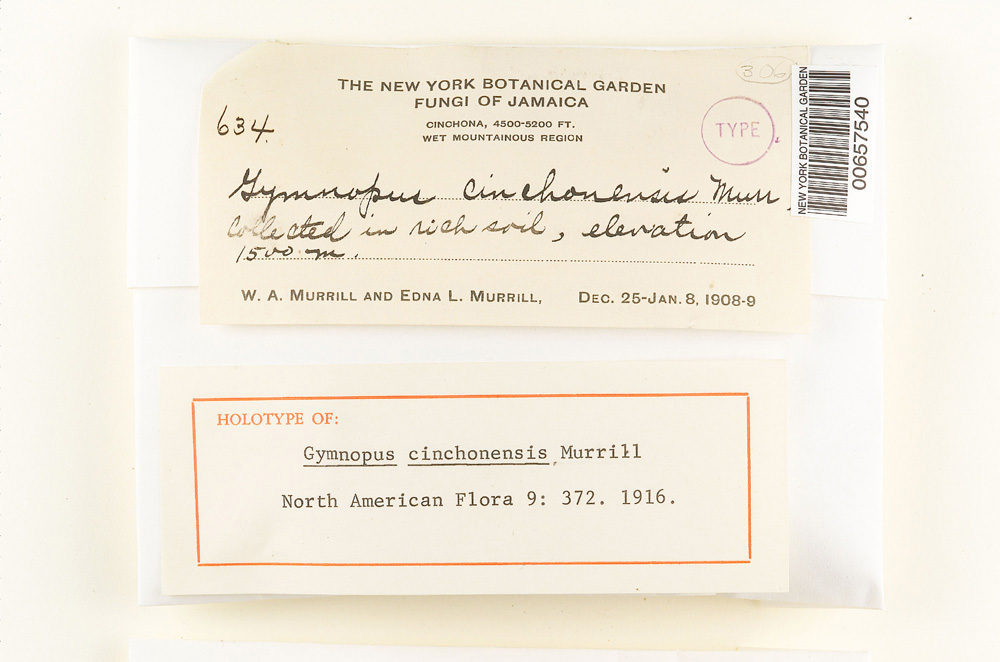 306
THE NEW YORK BOTANICAL GARDEN
FUNGI OF JAMAICA
CINCHONA, 4500-5200 FT.
WET MOUNTAINOUS REGION
634.
TYPE
NEW YORK BOTANICAL GARDEN
00657540
Gymnopus cinchonensis Murr.
Collected in rich soil, elevation
1500 m.
W. A. MURRILL AND EDNA L. MURRILL, DEC. 25-JAN. 8, 1908-9
HOLOTYPE OF:
Gymnopus cinchonensis Murrill
North American Flora 9: 372. 1916.